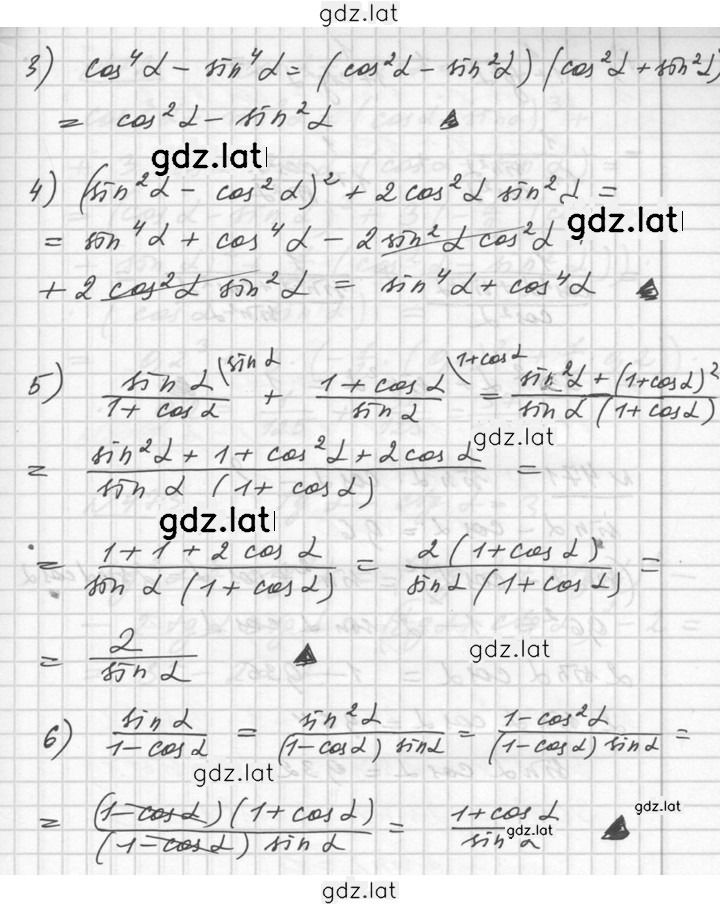 gdz.lat
3) cos⁴α − sin⁴α = (cos²α − sin²α)(cos²α + sin²α)
= cos²α − sin²α ▲
gdz.lat
4) (sin²α − cos²α)² + 2 cos²α sin²α =
gdz.lat
= sin⁴α + cos⁴α − 2 sin²α cos²α
+ 2 cos²α sin²α = sin⁴α + cos⁴α ▲
5) sin α / (1 + cos α) \sin α + (1 + cos α) / sin α \1+cos α = (sin²α + (1+cos α)²) / (sin α (1+cos α))
gdz.lat
= (sin²α + 1 + cos²α + 2 cos α) / (sin α (1 + cos α)) =
gdz.lat
= (1 + 1 + 2 cos α) / (sin α (1 + cos α)) = 2(1 + cos α) / (sin α (1 + cos α)) =
= 2 / sin α ▲
gdz.lat
6) sin α / (1 − cos α) = sin²α / ((1−cos α) sin α) = (1−cos²α) / ((1−cos α) sin α) =
gdz.lat
= (1−cos α)(1+cos α) / ((1−cos α) sin α) = (1+cos α) / sin α ▲
gdz.lat
gdz.lat
gdz.lat